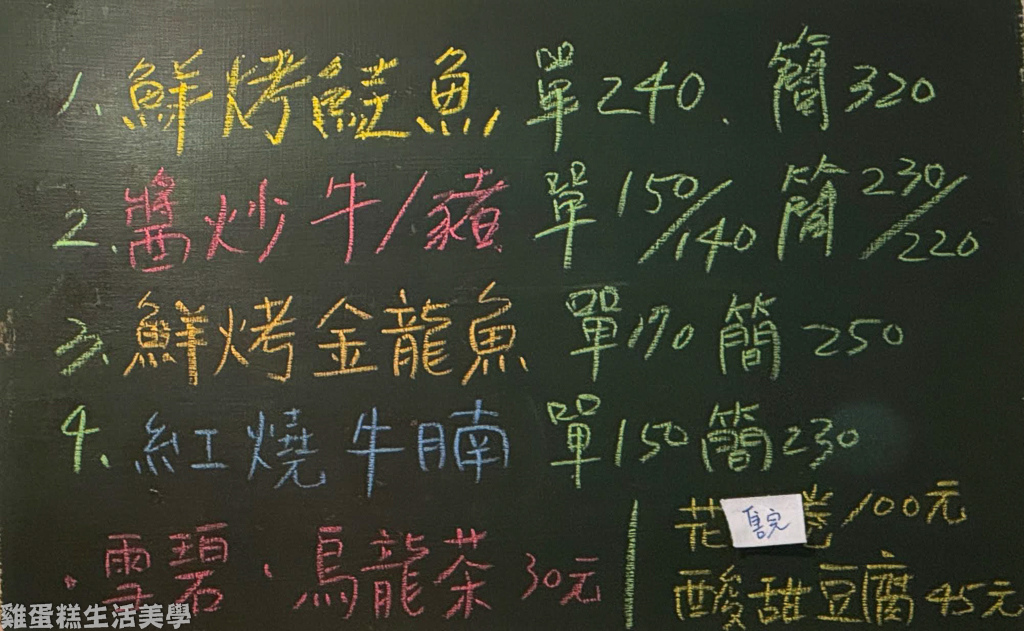 1. 鮮烤鮭魚 單240. 簡320
2. 醬炒牛/豬 單150/140 簡230/220
3. 鮮烤金龍魚 單170 簡250
4. 紅燒牛腩 單150 簡230
· 雪碧 · 烏龍茶 30元
花 售完 卷 100元
酸甜豆腐 45元
雞蛋糕生活美學